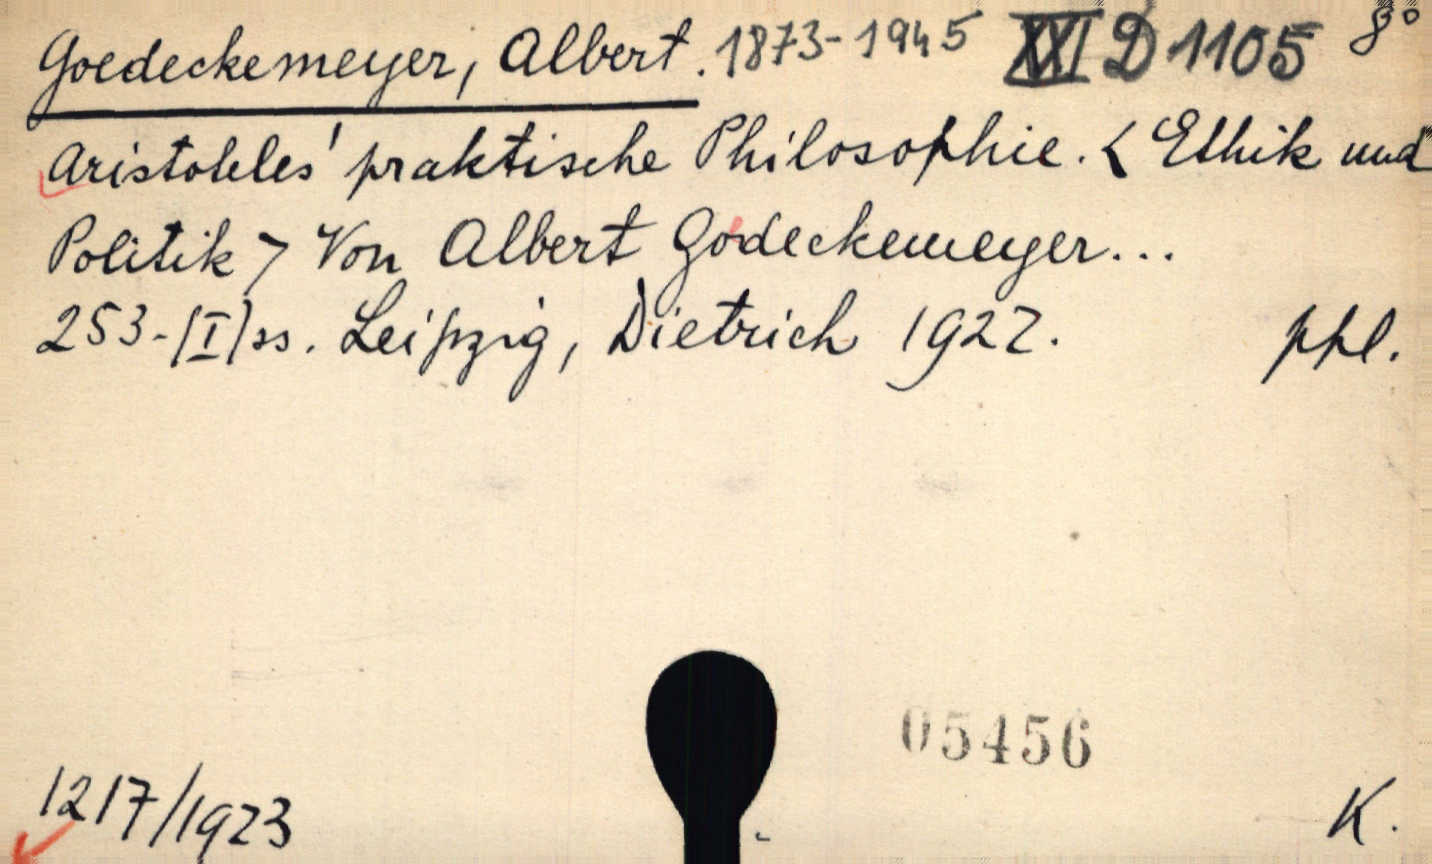 Goedeckemeyer, Albert. 1873-1945 XXI D 1105 8°
Aristoteles' praktische Philosophie. < Ethik und
Politik > Von Albert Gödeckemeyer...
253-(I)ss. Leipzig, Dietrich 1922. phl.
05456
1217/1923 K.